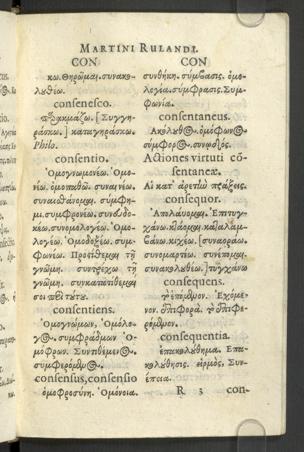 MARTINI RULANDI.
CON
κω. Θηρῶμαι. συνακο-
λυθέω.
consenesco.
παρακμάζω. [Συγγη-
ράσκω.] καταγηράσκω.
Philo.
consentio.
Ὁμογνωμονέω. Ὁμο-
νέω. ὁμοπαθῶ. συναινέω.
συναισθάνομαι. σύμφη-
μι. συμφρονέω. συνδοκέω. συνομολογέω. Ὁμο-
λογέω. Ὁμοδοξέω. συμ-
φωνέω. Προστίθεμαι τῇ
γνώμῃ. συντρέχω τῇ
γνώμῃ. συγκατατίθεμαί
σοι περὶ τούτου
consentiens.
Ὁμογνώμων. Ὁμόλο-
γος. συμφράδμων. Ὁ-
μόφρων. Συντιθέμενος.
συμφερόμενος.
consensus, consensio
ὁμοφροσύνη. Ὁμόνοια.
CON
συνθήκη. σύμβασις. ὁμο-
λογία. σύμφρασις. Συμ-
φωνία.
consentaneus.
Ἀκόλουθος. ὁμόφωνος.
σύμφορος. συνῳδός.
Actiones virtuti cō-
sentaneæ.
Αἱ κατ' ἀρετὴν πράξεις.
consequor.
Ἀπολαύομαι. Ἐπιτυγ-
χάνω. κτάομαι. καταλαμ-
βάνω. κιχέω. [συναοράω.
συνομαρτέω. συνέπομαι.
συνακολουθέω.] τυγχάνω
consequens.
ἑπόμενον. Ἐχόμε-
νον. ἐπιφορά. ἐπιφε-
ρόμενον.
consequentia.
ἐπακολούθημα. Ἐπα-
κολούθησις. εἱρμός. Συν-
έπεια.
R 3 con-